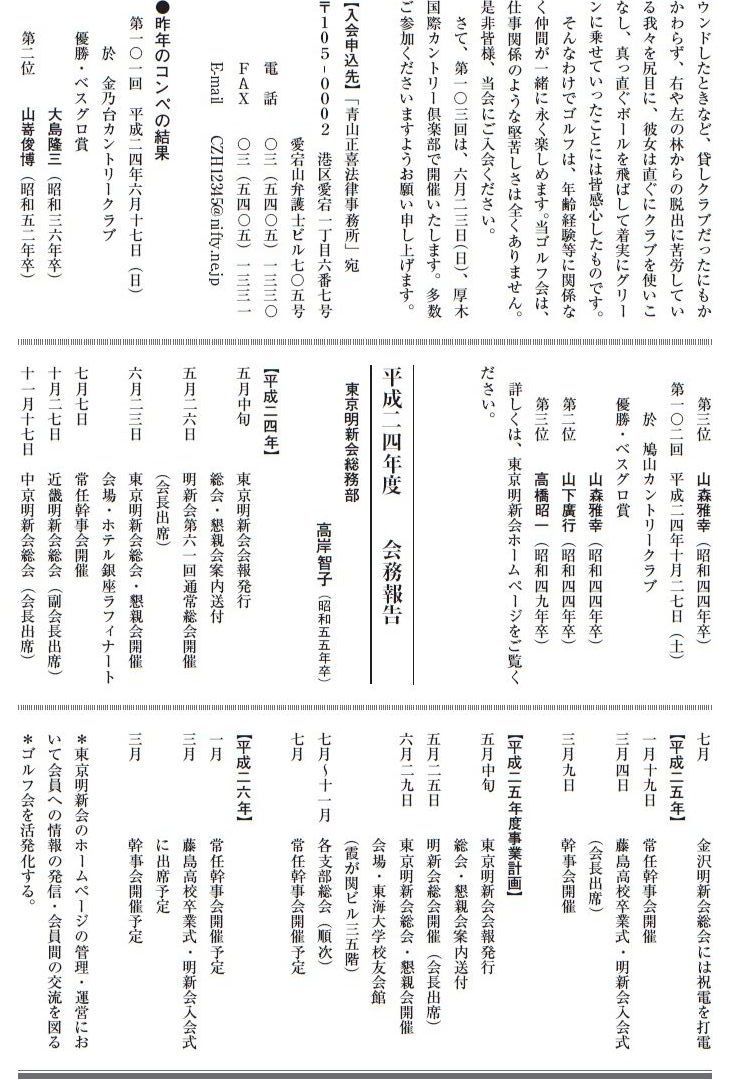 ウンドしたときなど、貸しクラブだったにもか
かわらず、右や左の林からの脱出に苦労してい
る我々を尻目に、彼女は直ぐにクラブを使いこ
なし、真っ直ぐボールを飛ばして着実にグリー
ンに乗せていったことには皆感心したものです。
そんなわけでゴルフは、年齢経験等に関係な
く仲間が一緒に永く楽しめます。当ゴルフ会は、
仕事関係のような堅苦しさは全くありません。
是非皆様、当会にご入会ください。
さて、第一〇三回は、六月二三日(日)、厚木
国際カントリー倶楽部で開催いたします。多数
ご参加くださいますようお願い申し上げます。
【入会申込先】「青山正喜法律事務所」宛
〒105-0002 港区愛宕一丁目六番七号
愛宕山弁護士ビル七〇五号
電 話 〇三(五四〇五)一三三〇
FAX 〇三(五四〇五)一三三一
E-mail CZH12345@nifty.ne.jp
●昨年のコンペの結果
第一〇一回 平成二四年六月十七日(日)
於 金乃台カントリークラブ
優勝・ベスグロ賞
大島隆三(昭和三六年卒)
第二位 山嵜俊博(昭和五二年卒)
第三位 山森雅幸(昭和四四年卒)
第一〇二回 平成二四年十月二七日(土)
於 鳩山カントリークラブ
優勝・ベスグロ賞
山森雅幸(昭和四四年卒)
第二位 山下廣行(昭和四四年卒)
第三位 高橋昭一(昭和四九年卒)
詳しくは、東京明新会ホームページをご覧く
ださい。
平成二四年度 会務報告
東京明新会総務部
高岸智子(昭和五五年卒)
【平成二四年】
五月中旬 東京明新会会報発行
総会・懇親会案内送付
五月二六日 明新会第六一回通常総会開催
(会長出席)
六月二三日 東京明新会総会・懇親会開催
会場・ホテル銀座ラフィナート
七月七日 常任幹事会開催
十月二七日 近畿明新会総会(副会長出席)
十一月十七日 中京明新会総会(会長出席)
七月 金沢明新会総会には祝電を打電
【平成二五年】
一月十九日 常任幹事会開催
三月四日 藤島高校卒業式・明新会入会式
(会長出席)
三月九日 幹事会開催
【平成二五年度事業計画】
五月中旬 東京明新会会報発行
総会・懇親会案内送付
五月二五日 明新会総会開催(会長出席)
六月二九日 東京明新会総会・懇親会開催
会場・東海大学校友会館
(霞が関ビル三五階)
七月~十一月 各支部総会(順次)
七月 常任幹事会開催予定
【平成二六年】
一月 常任幹事会開催予定
三月 藤島高校卒業式・明新会入会式
に出席予定
三月 幹事会開催予定
*東京明新会のホームページの管理・運営にお
いて会員への情報の発信・会員間の交流を図る
*ゴルフ会を活発化する。